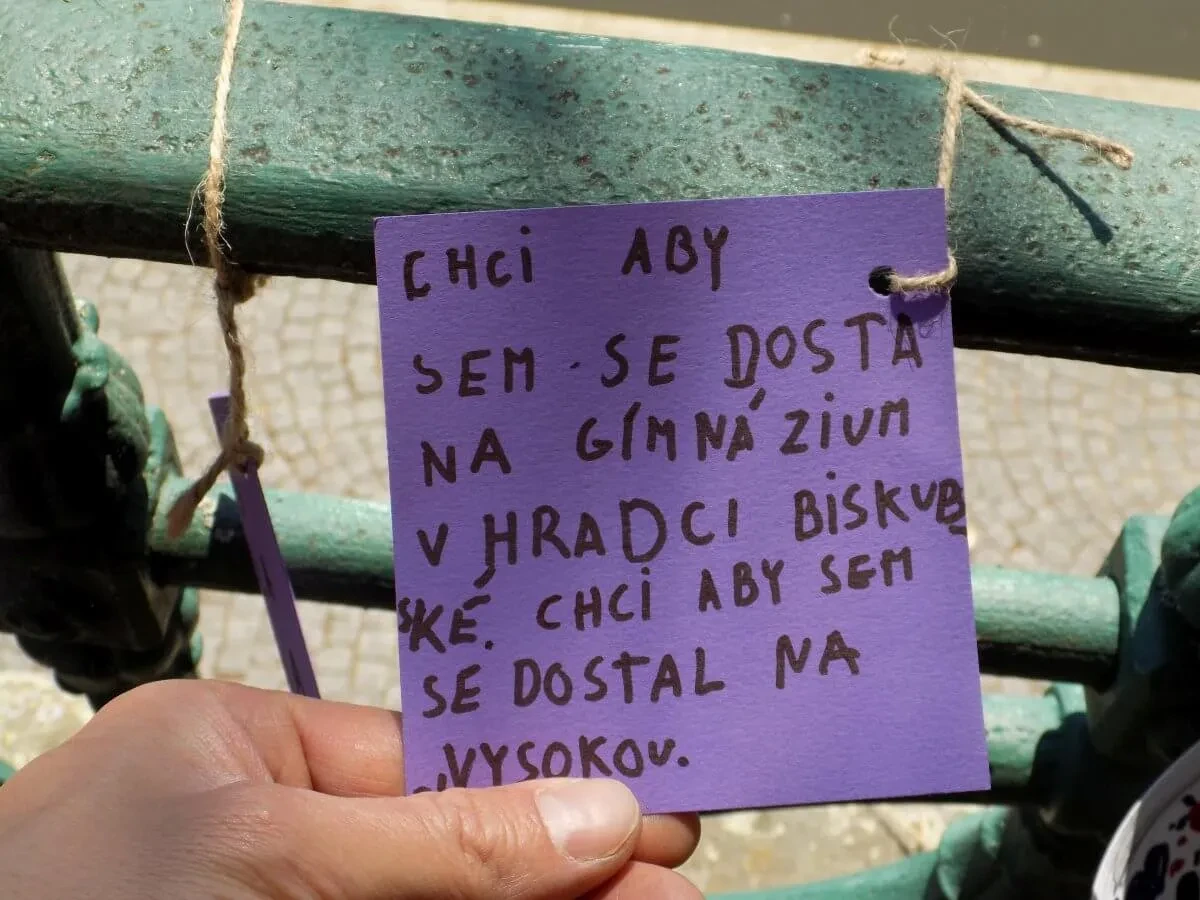 CHCi ABY
SEM SE DOSTA
NA GÍMNÁZiUM
V HRADCI BiSKUB
SKÉ. CHCi ABY SEM
SE DOSTAL NA
VYSOKOU.